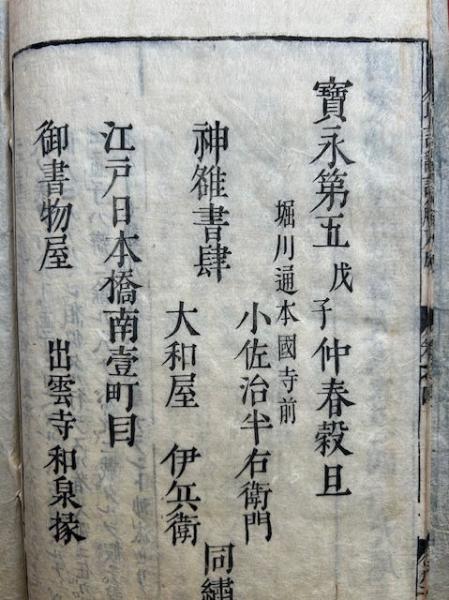 寶永第五戊子仲春穀旦
堀川通本國寺前
小佐治半右衛門
神雒書肆
大和屋 伊兵衛
同繡
江戸日本橋南壹町目
御書物屋 出雲寺和泉掾